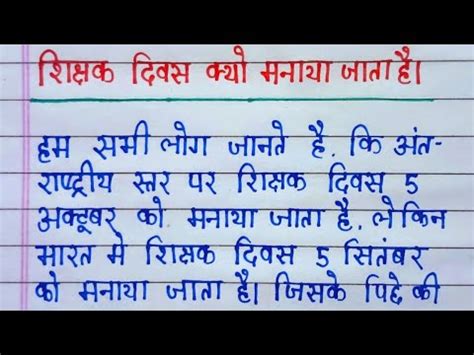 शिक्षक दिवस क्यो मनाया जाता है।
हम सभी लोग जानते है, कि अंत-
राष्ट्रीय स्तर पर शिक्षक दिवस 5
अक्टूबर को मनाया जाता है, लेकिन
भारत मे शिक्षक दिवस 5 सितंबर
को मनाया जाता है। जिसके पिछे की